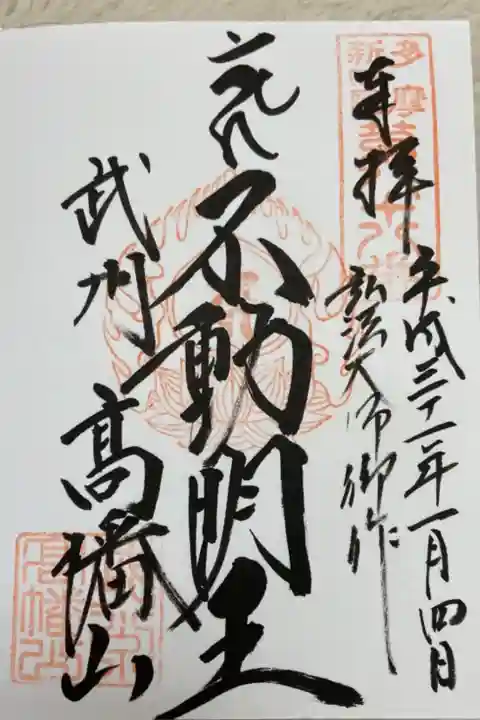 奉拝
平成三十一年一月四日
弘法大師御作
不動明王
武州
高幡山
多摩
新
高幡山